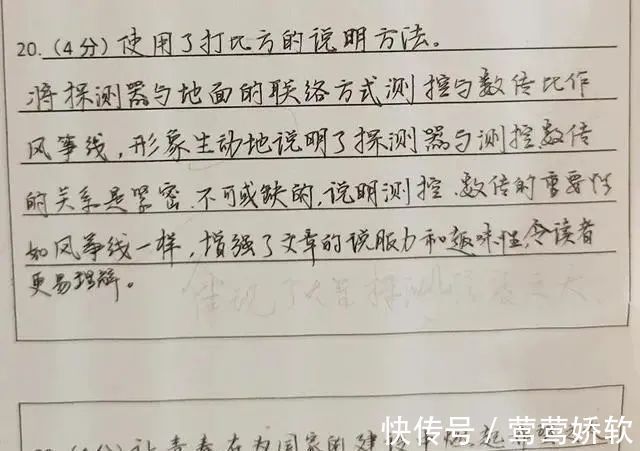 20.（4分）使用了打比方的说明方法。
将探测器与地面的联络方式测控与数传比作
风筝线，形象生动地说明了探测器与测控数传
的关系是紧密、不可或缺的，说明测控、数传的重要性
如风筝线一样，增强了文章的说服力和趣味性，令读者
更易理解。
(4分)让青春在为国家的建设中燃起
快传号／莺莺娇软